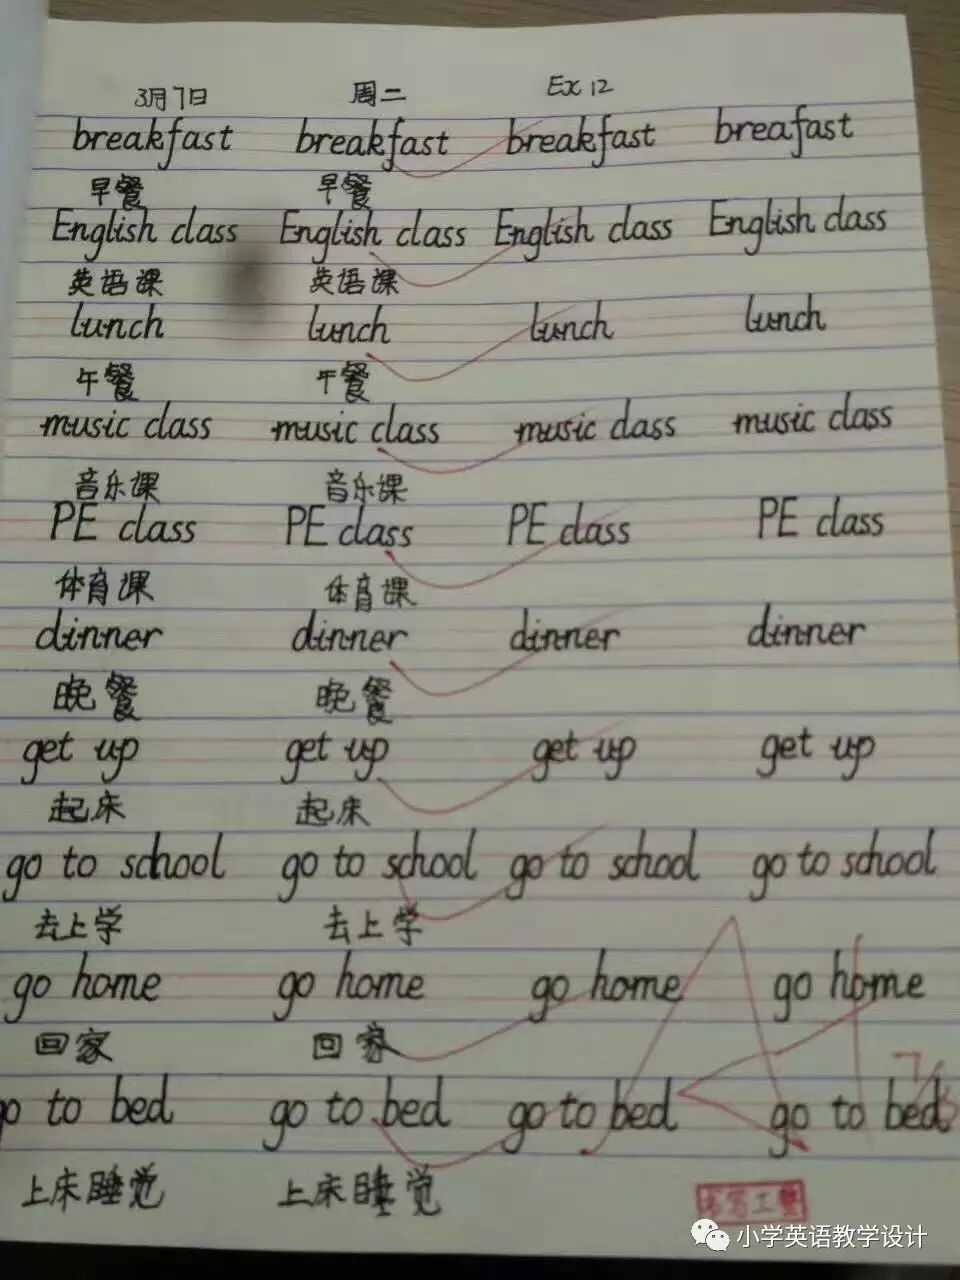 3月7日 周二 Ex 12
breakfast breakfast breakfast breafast
早餐 早餐
English class English class English class English class
英语课 英语课
lunch lunch lunch lunch
午餐 午餐
music class music class music class music class
音乐课 音乐课
PE class PE class PE class PE class
体育课 体育课
dinner dinner dinner dinner
晚餐 晚餐
get up get up get up get up
起床 起床
go to school go to school go to school go to school
去上学 去上学
go home go home go home go home
回家 回家
go to bed go to bed go to bed go to bed
上床睡觉 上床睡觉
书写工整
小学英语教学设计